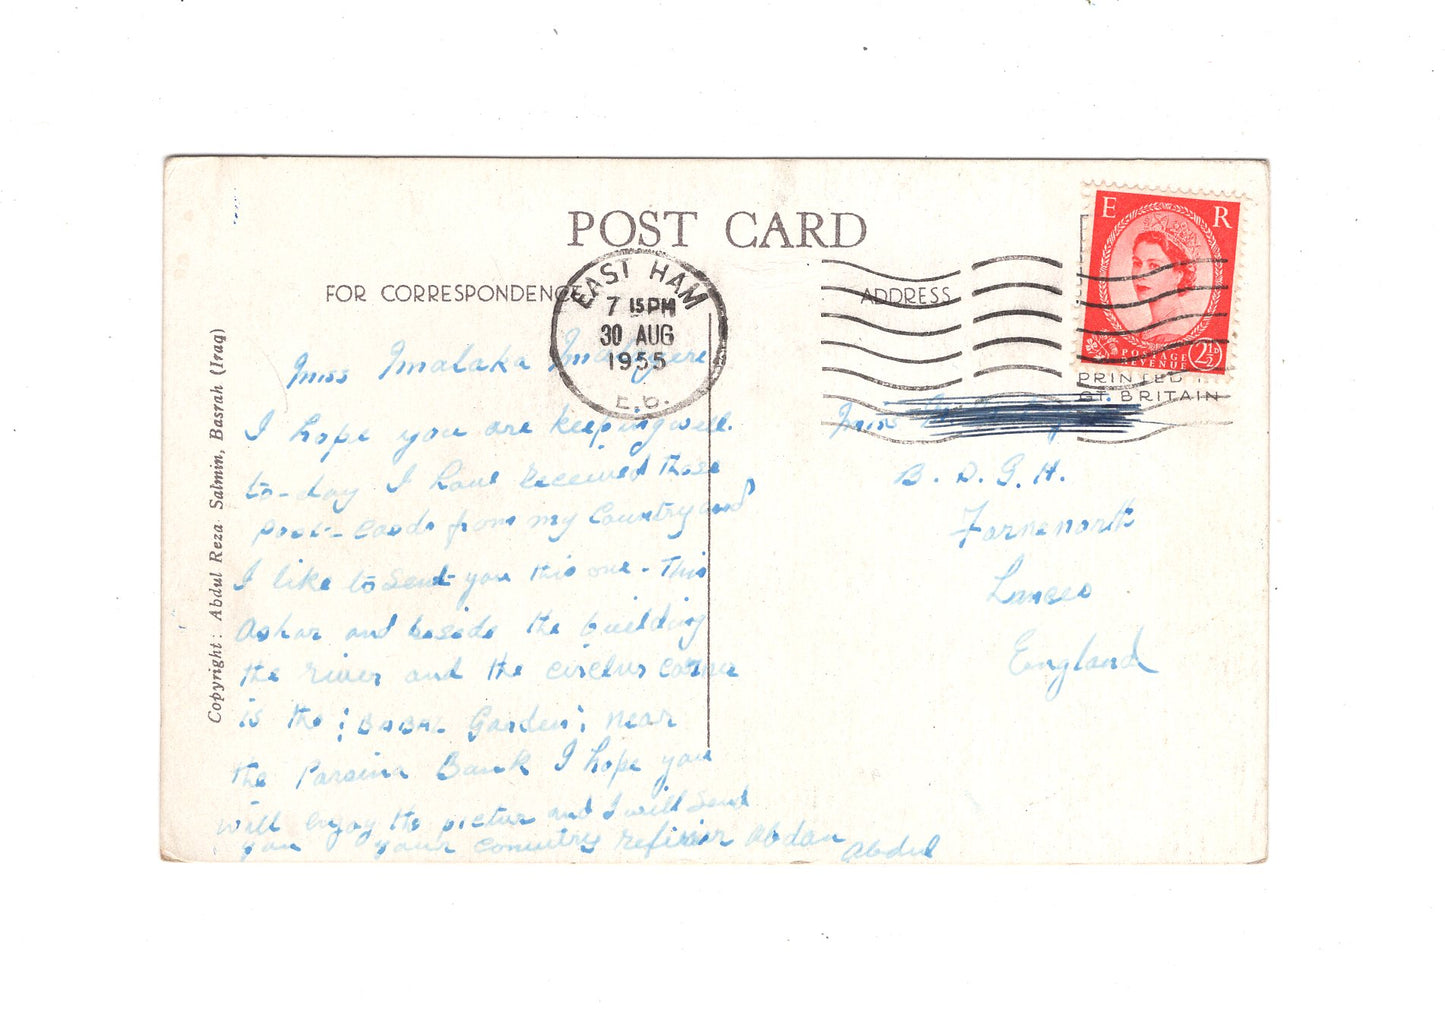 POST CARD
FOR CORRESPONDENCE
ADDRESS
EAST HAM
7 15 PM
30 AUG
1955
E.6.
E R
POSTAGE
REVENUE
2½D
PRINTED IN
GT. BRITAIN
Copyright: Abdul Reza Salmin, Basrah (Iraq)
Miss Imalaka
I hope you are keeping well.
to-day I have received these
post-cards from my Country and
I like to send you this one - This
Ashar and beside the building
the river and the circlus corner
is the ; Garden ; near
the Bank I hope you
will enjoy the pictur and I will send
you your country Abdan Abdul
Miss
B. D. G. H.
Lances
England